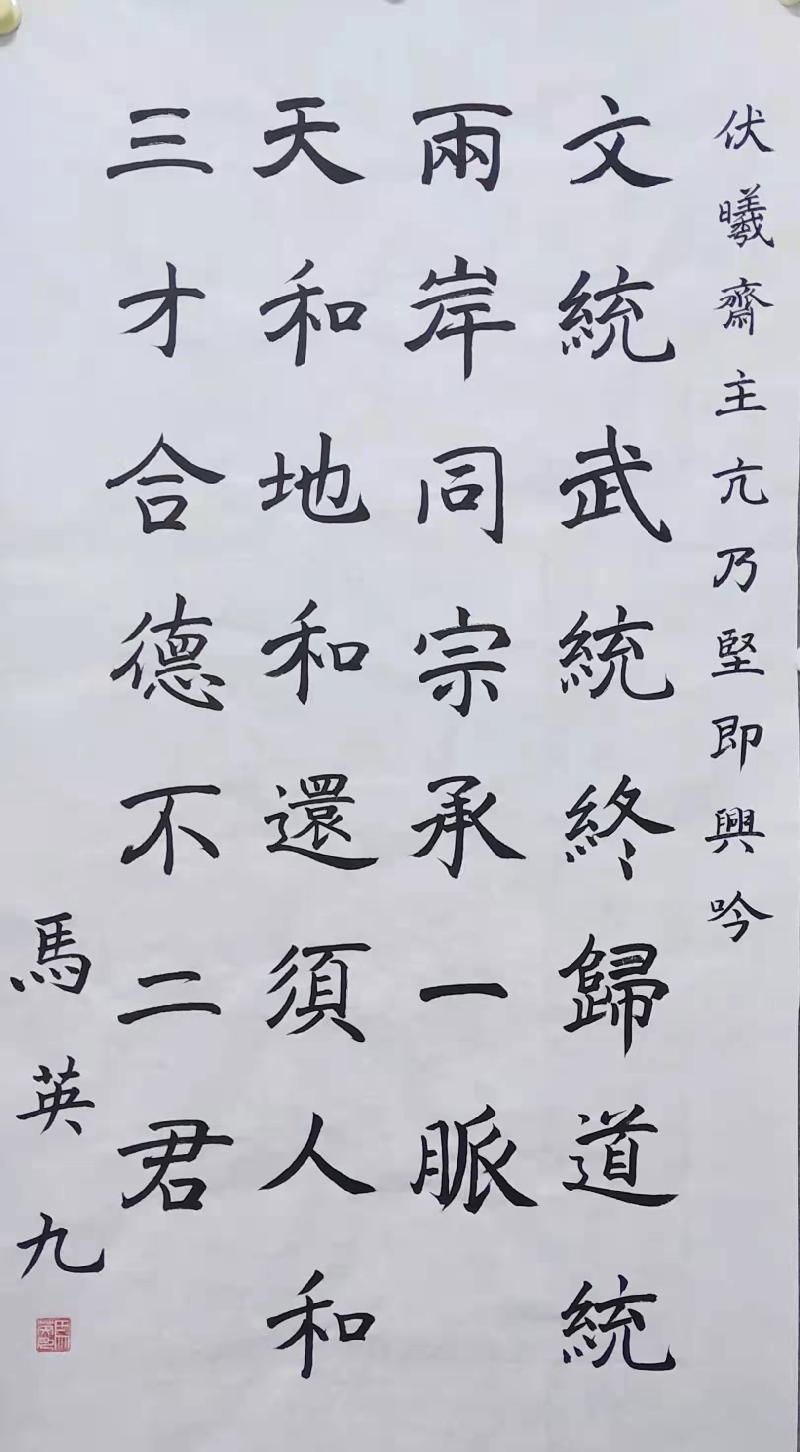 伏羲齋主亢乃堅即興吟
文統武統終歸道統
兩岸同宗承一脈
天和地和還須人和
三才合德不二君
馬英九